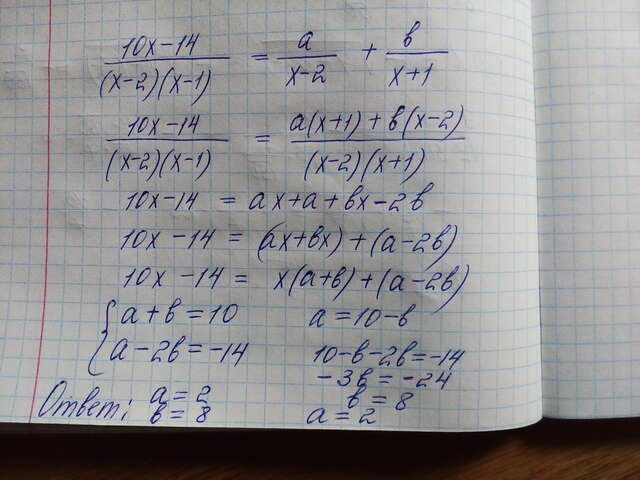 10x-14 / (x-2)(x-1) = a / x-2 + b / x+1
10x-14 / (x-2)(x-1) = a(x+1)+b(x-2) / (x-2)(x+1)
10x-14 = ax+a+bx-2b
10x-14 = (ax+bx)+(a-2b)
10x-14 = x(a+b)+(a-2b)
{ a+b=10 a=10-b
a-2b=-14 10-b-2b=-14
-3b=-24
Ответ: a=2 b=8
b=8 a=2